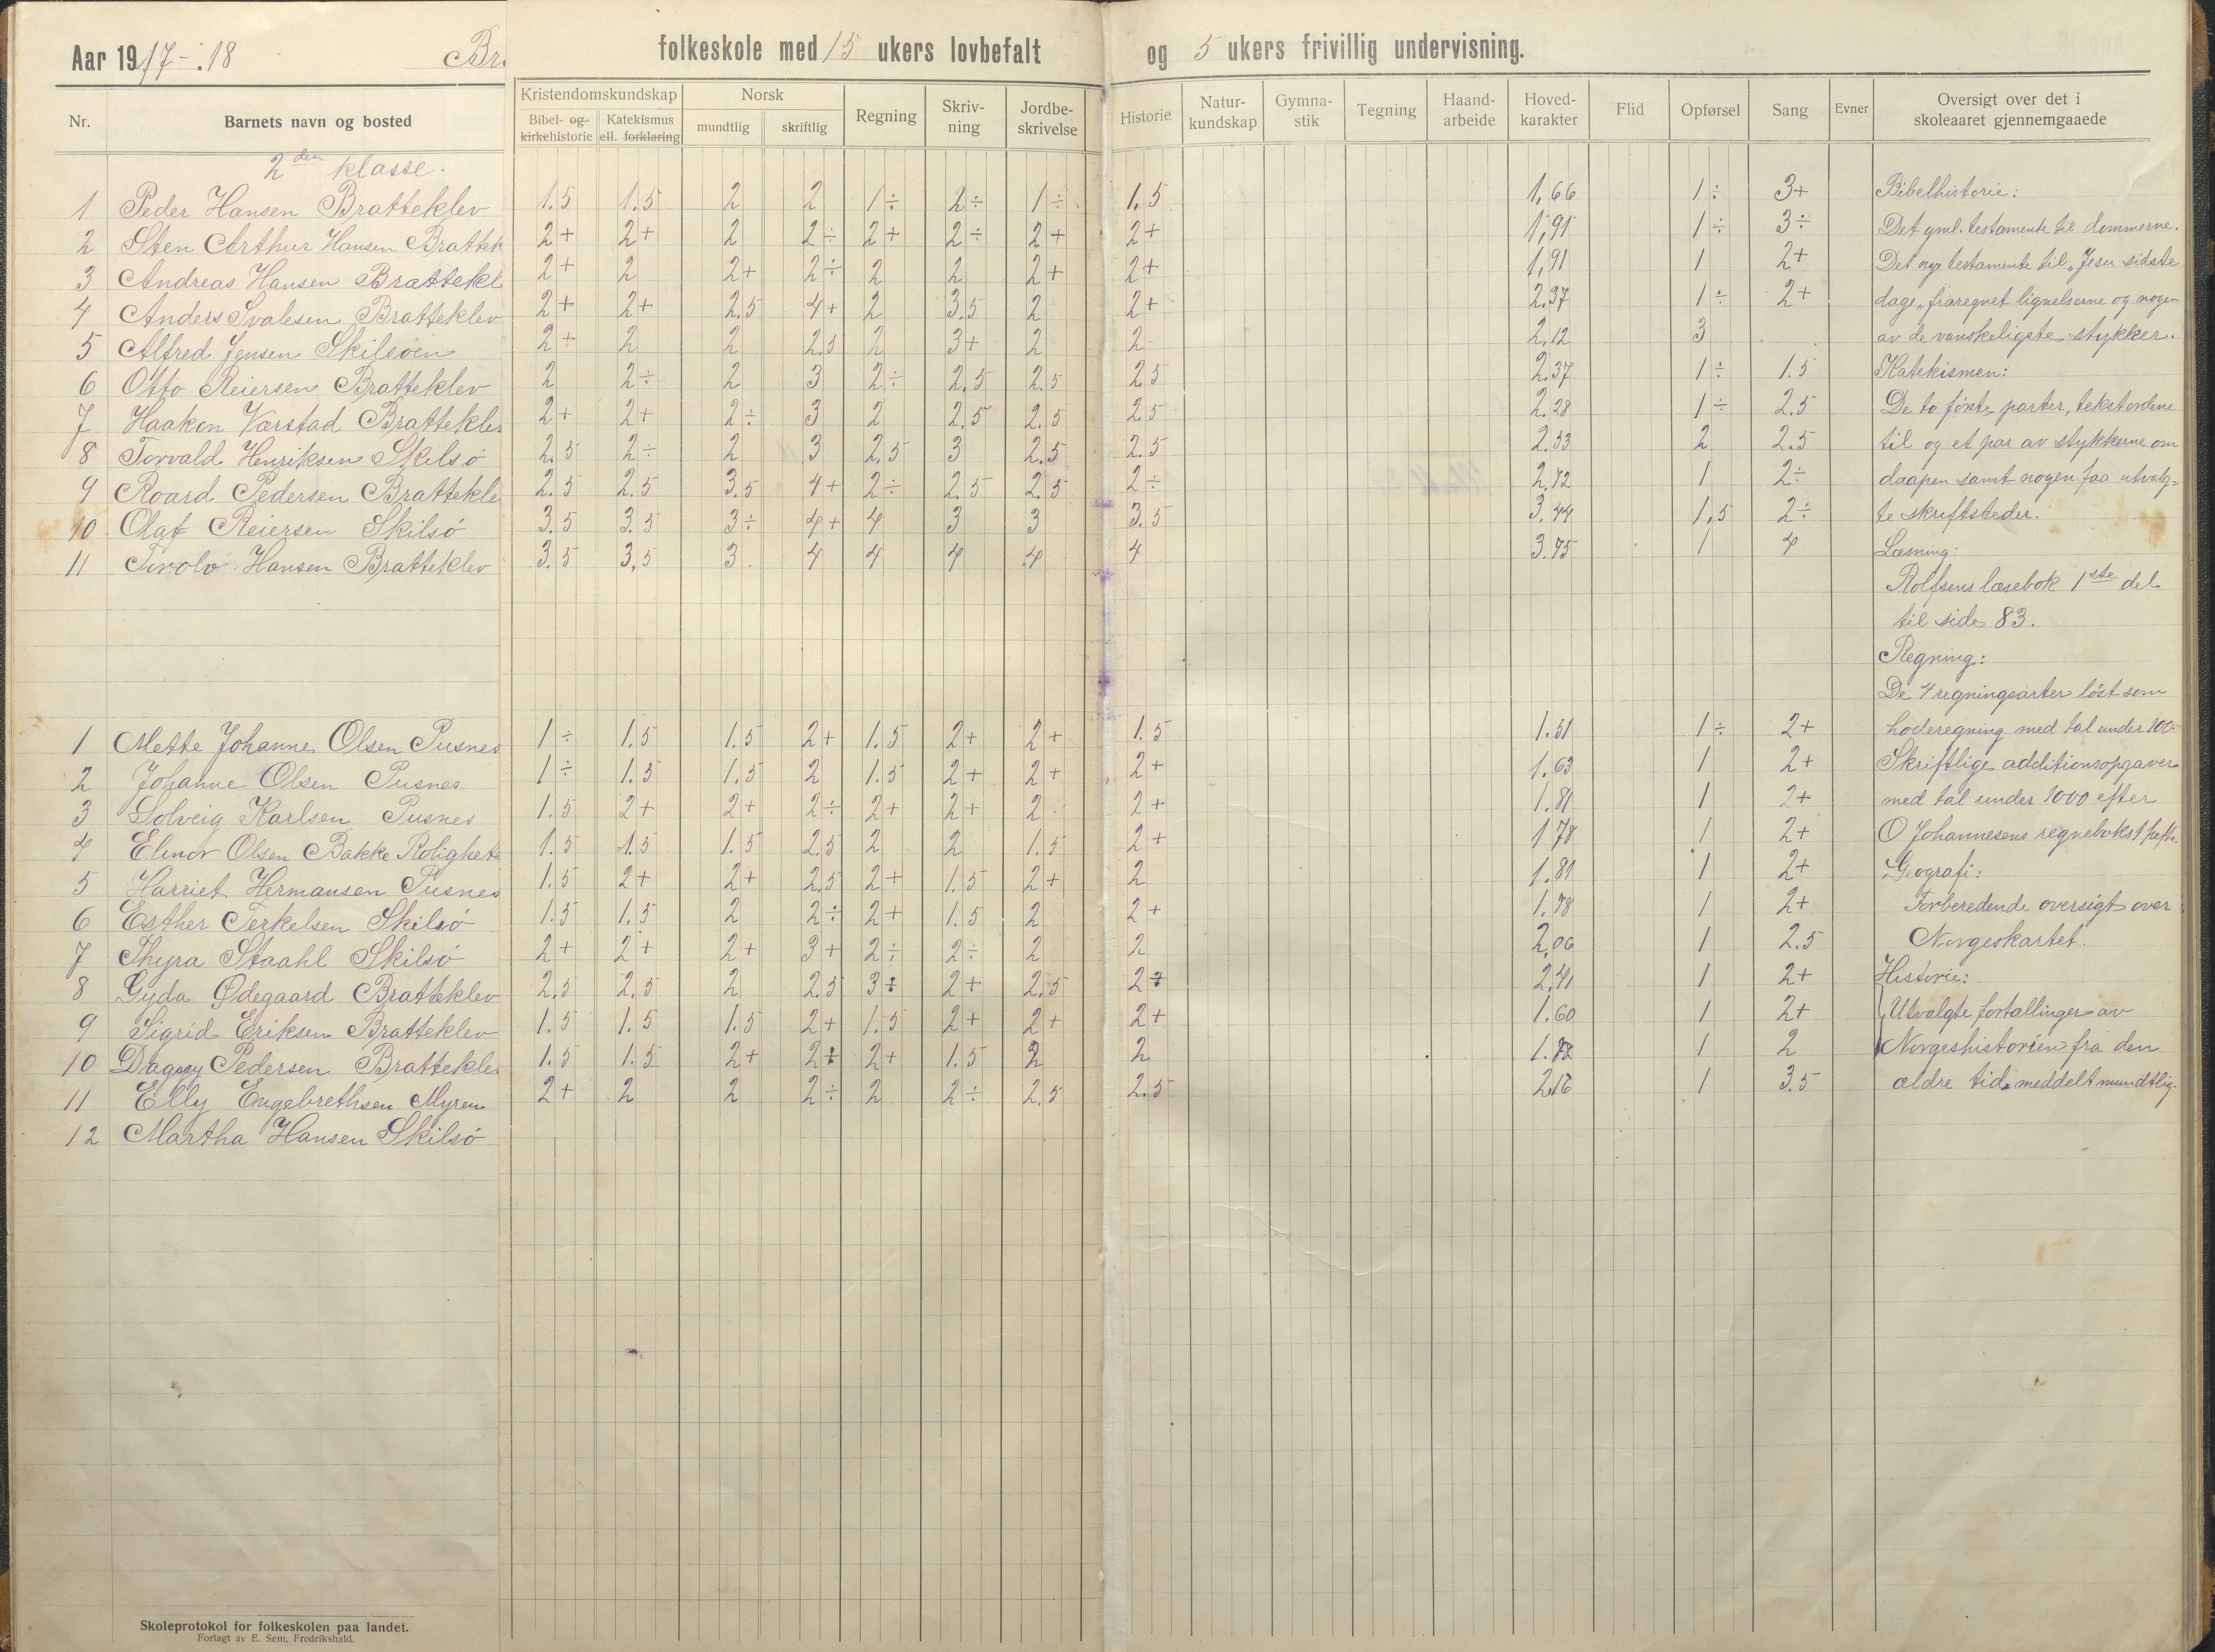 Aar 1917-18 Br folkeskole med 15 ukers lovbefalt og 5 ukers frivillig undervisning.
Nr. Barnets navn og bosted Kristendomskundskap Bibel- og kirkehistorie Katekismus ell. forklaring Norsk mundtlig skriftlig Regning Skriv-ning Jordbe-skrivelse Historie Natur-kundskap Gymna-stik Tegning Haand-arbeide Hoved-karakter Flid Opførsel Sang Evner Oversigt over det i skoleaaret gjennemgaaede
2den klasse.
1 Peder Hansen Bratteklev 1.5 1.5 2 2 1÷ 2÷ 1÷ 1.5 1,66 1÷ 3+ Bibelhistorie:
2 Sten Arthur Hansen Brattek 2+ 2+ 2 2÷ 2+ 2÷ 2+ 2+ 1,91 1÷ 3÷ Det gml. testamente til dommerne.
3 Andreas Hansen Brattekl 2+ 2 2+ 2÷ 2 2 2+ 2+ 1,91 1 2+ Det nye testamente til „Jesu sidste
4 Anders Svalesen Bratteklev 2+ 2+ 2.5 4+ 2 3.5 2 2+ 2.37 1÷ 2+ dage„ fraregnet lignelserne og nogen
5 Alfred Jensen Skilsøen 2+ 2 2 2.5 2 3+ 2 2 2.12 3 av de vanskeligste stykker.
6 Otto Reiersen Bratteklev 2 2÷ 2 3 2÷ 2.5 2.5 2.5 2.37 1÷ 1.5 Katekismen:
7 Haakon Værstad Bratteklev 2+ 2+ 2÷ 3 2 2.5 2.5 2.5 2.28 1÷ 2.5 De to første parter, tekstordene
8 Torvald Henriksen Skilsø 2.5 2÷ 2 3 2.5 3 2.5 2.5 2.53 2 2.5 til og et par av stykkerne om
9 Roard Pedersen Brattekle 2.5 2.5 3.5 4+ 2÷ 2.5 2.5 2÷ 2.72 1 2÷ daapen samt nogen faa utvalg=
10 Olaf Reiersen Skilsø 3.5 3.5 3÷ 4+ 4 3 3 3.5 3.44 1,5 2÷ te skriftsteder.
11 Torolv Hansen Bratteklev 3.5 3,5 3 4 4 4 4 4 3.75 1 4 Læsning:
Rolfsens læsebok 1ste del
til side 83.
Regning:
De 4 regningsarter løst som
1 Mette Johanne Olsen Pusnes 1÷ 1.5 1.5 2+ 1.5 2+ 2+ 1.5 1.51 1÷ 2+ hoderegning med tal under 100.
2 Johanne Olsen Pusnes 1÷ 1.5 1.5 2 1.5 2+ 2+ 2+ 1.63 1 2+ Skriftlige additionsopgaver
3 Solveig Karlsen Pusnes 1.5 2+ 2+ 2÷ 2+ 2+ 2 2+ 1.81 1 2+ med tal under 1000 efter
4 Elinor Olsen Bakke Rolighete 1.5 1.5 1.5 2.5 2 2 1.5 2+ 1.78 1 2+ O Johannesens regneboks 1 hefte.
5 Harriet Hermansen Pusnes 1.5 2+ 2+ 2.5 2+ 1.5 2+ 2 1.81 1 2+ Geografi:
6 Esther Terkelsen Skilsø 1.5 1.5 2 2÷ 2+ 1.5 2 2+ 1.78 1 2+ Forberedende oversigt over
7 Thyra Staahl Skilsø 2+ 2+ 2+ 3+ 2÷ 2÷ 2 2 2,06 1 2.5 Norgeskartet.
8 Gyda Ødegaard Bratteklev 2.5 2.5 2 2.5 3÷ 2+ 2.5 2+ 2,41 1 2+ Historie:
9 Sigrid Eriksen Bratteklev 1.5 1.5 1.5 2+ 1.5 2+ 2+ 2+ 1.60 1 2+ Utvalgte fortallinger av
10 Dagny Pedersen Bratteklev 1.5 1.5 2+ 2+ 2+ 1.5 2 2 1.72 1 2 Norgeshistorien fra den
11 Elly Engebrethsen Myren 2+ 2 2 2÷ 2 2÷ 2.5 2.5 2.16 1 3.5 ældre tid meddelt mundtlig.
12 Martha Hansen Skilsø
Skoleprotokol for folkeskolen paa landet.
Forlagt av E. Sem, Fredrikshald.